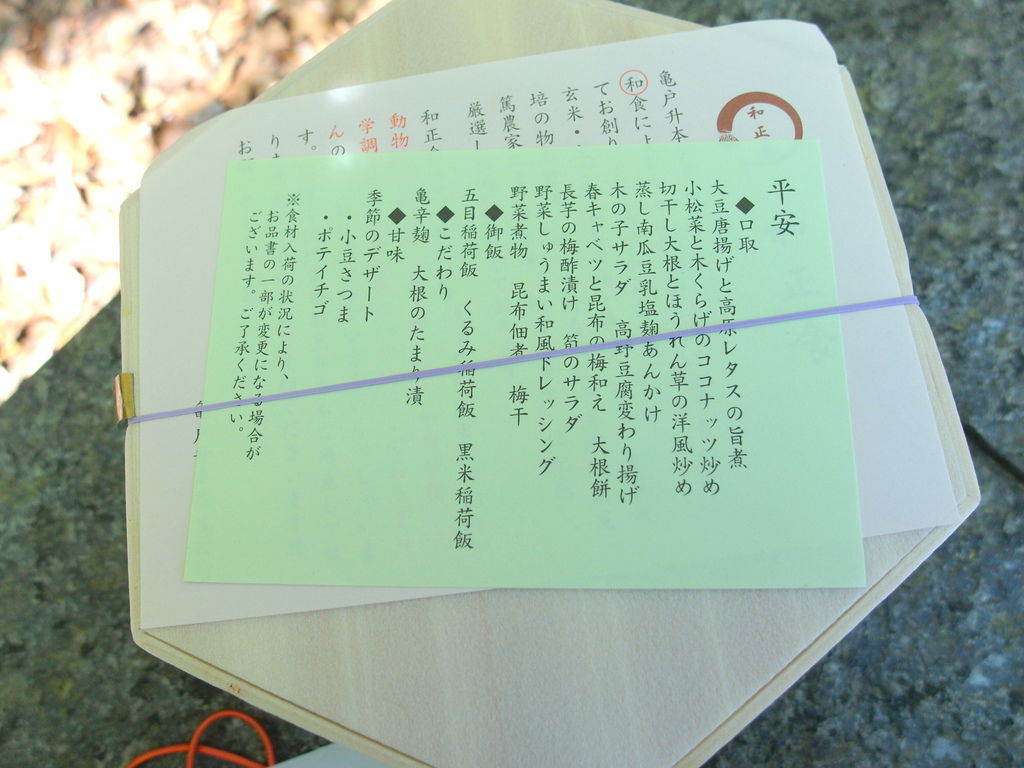 平安
◆口取
大豆唐揚げと高原レタスの旨煮
小松菜と木くらげのココナッツ炒め
切干し大根とほうれん草の洋風炒め
蒸し南瓜豆乳塩麹あんかけ
木の子サラダ 高野豆腐変わり揚げ
春キャベツと昆布の梅和え 大根餅
長芋の梅酢漬け 筍のサラダ
野菜しゅうまい和風ドレッシング
野菜煮物 昆布佃煮 梅干
◆御飯
五目稲荷飯 くるみ稲荷飯 黒米稲荷飯
◆こだわり
亀辛麹 大根のたまり漬
◆甘味
季節のデザート
・小豆さつま
・ポテイチゴ
※食材入荷の状況により、
お品書の一部が変更になる場合が
ございます。ご了承ください。
和正
亀戸升本
和食によ
てお創り
玄米・
培の物
篤農家
厳選し
和正
動物
学調
んの
す。
り
お